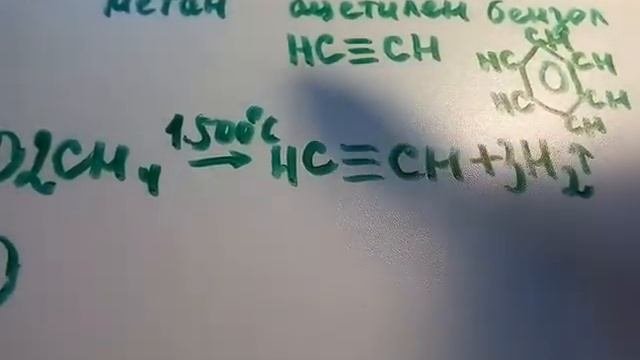 метан ацетилен бензол
HC≡CH
CH
HC CH
HC CH
CH
)2CH₄ 1500°C → HC≡CH+3H₂↑
)